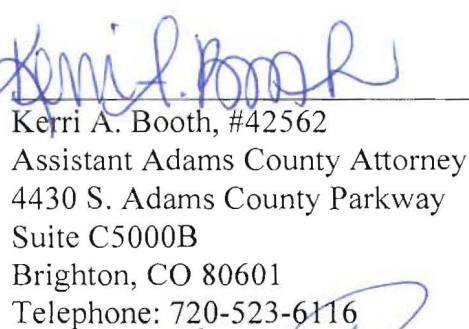 Kerri A. Booth
Kerri A. Booth, #42562
Assistant Adams County Attorney
4430 S. Adams County Parkway
Suite C5000B
Brighton, CO 80601
Telephone: 720-523-6116